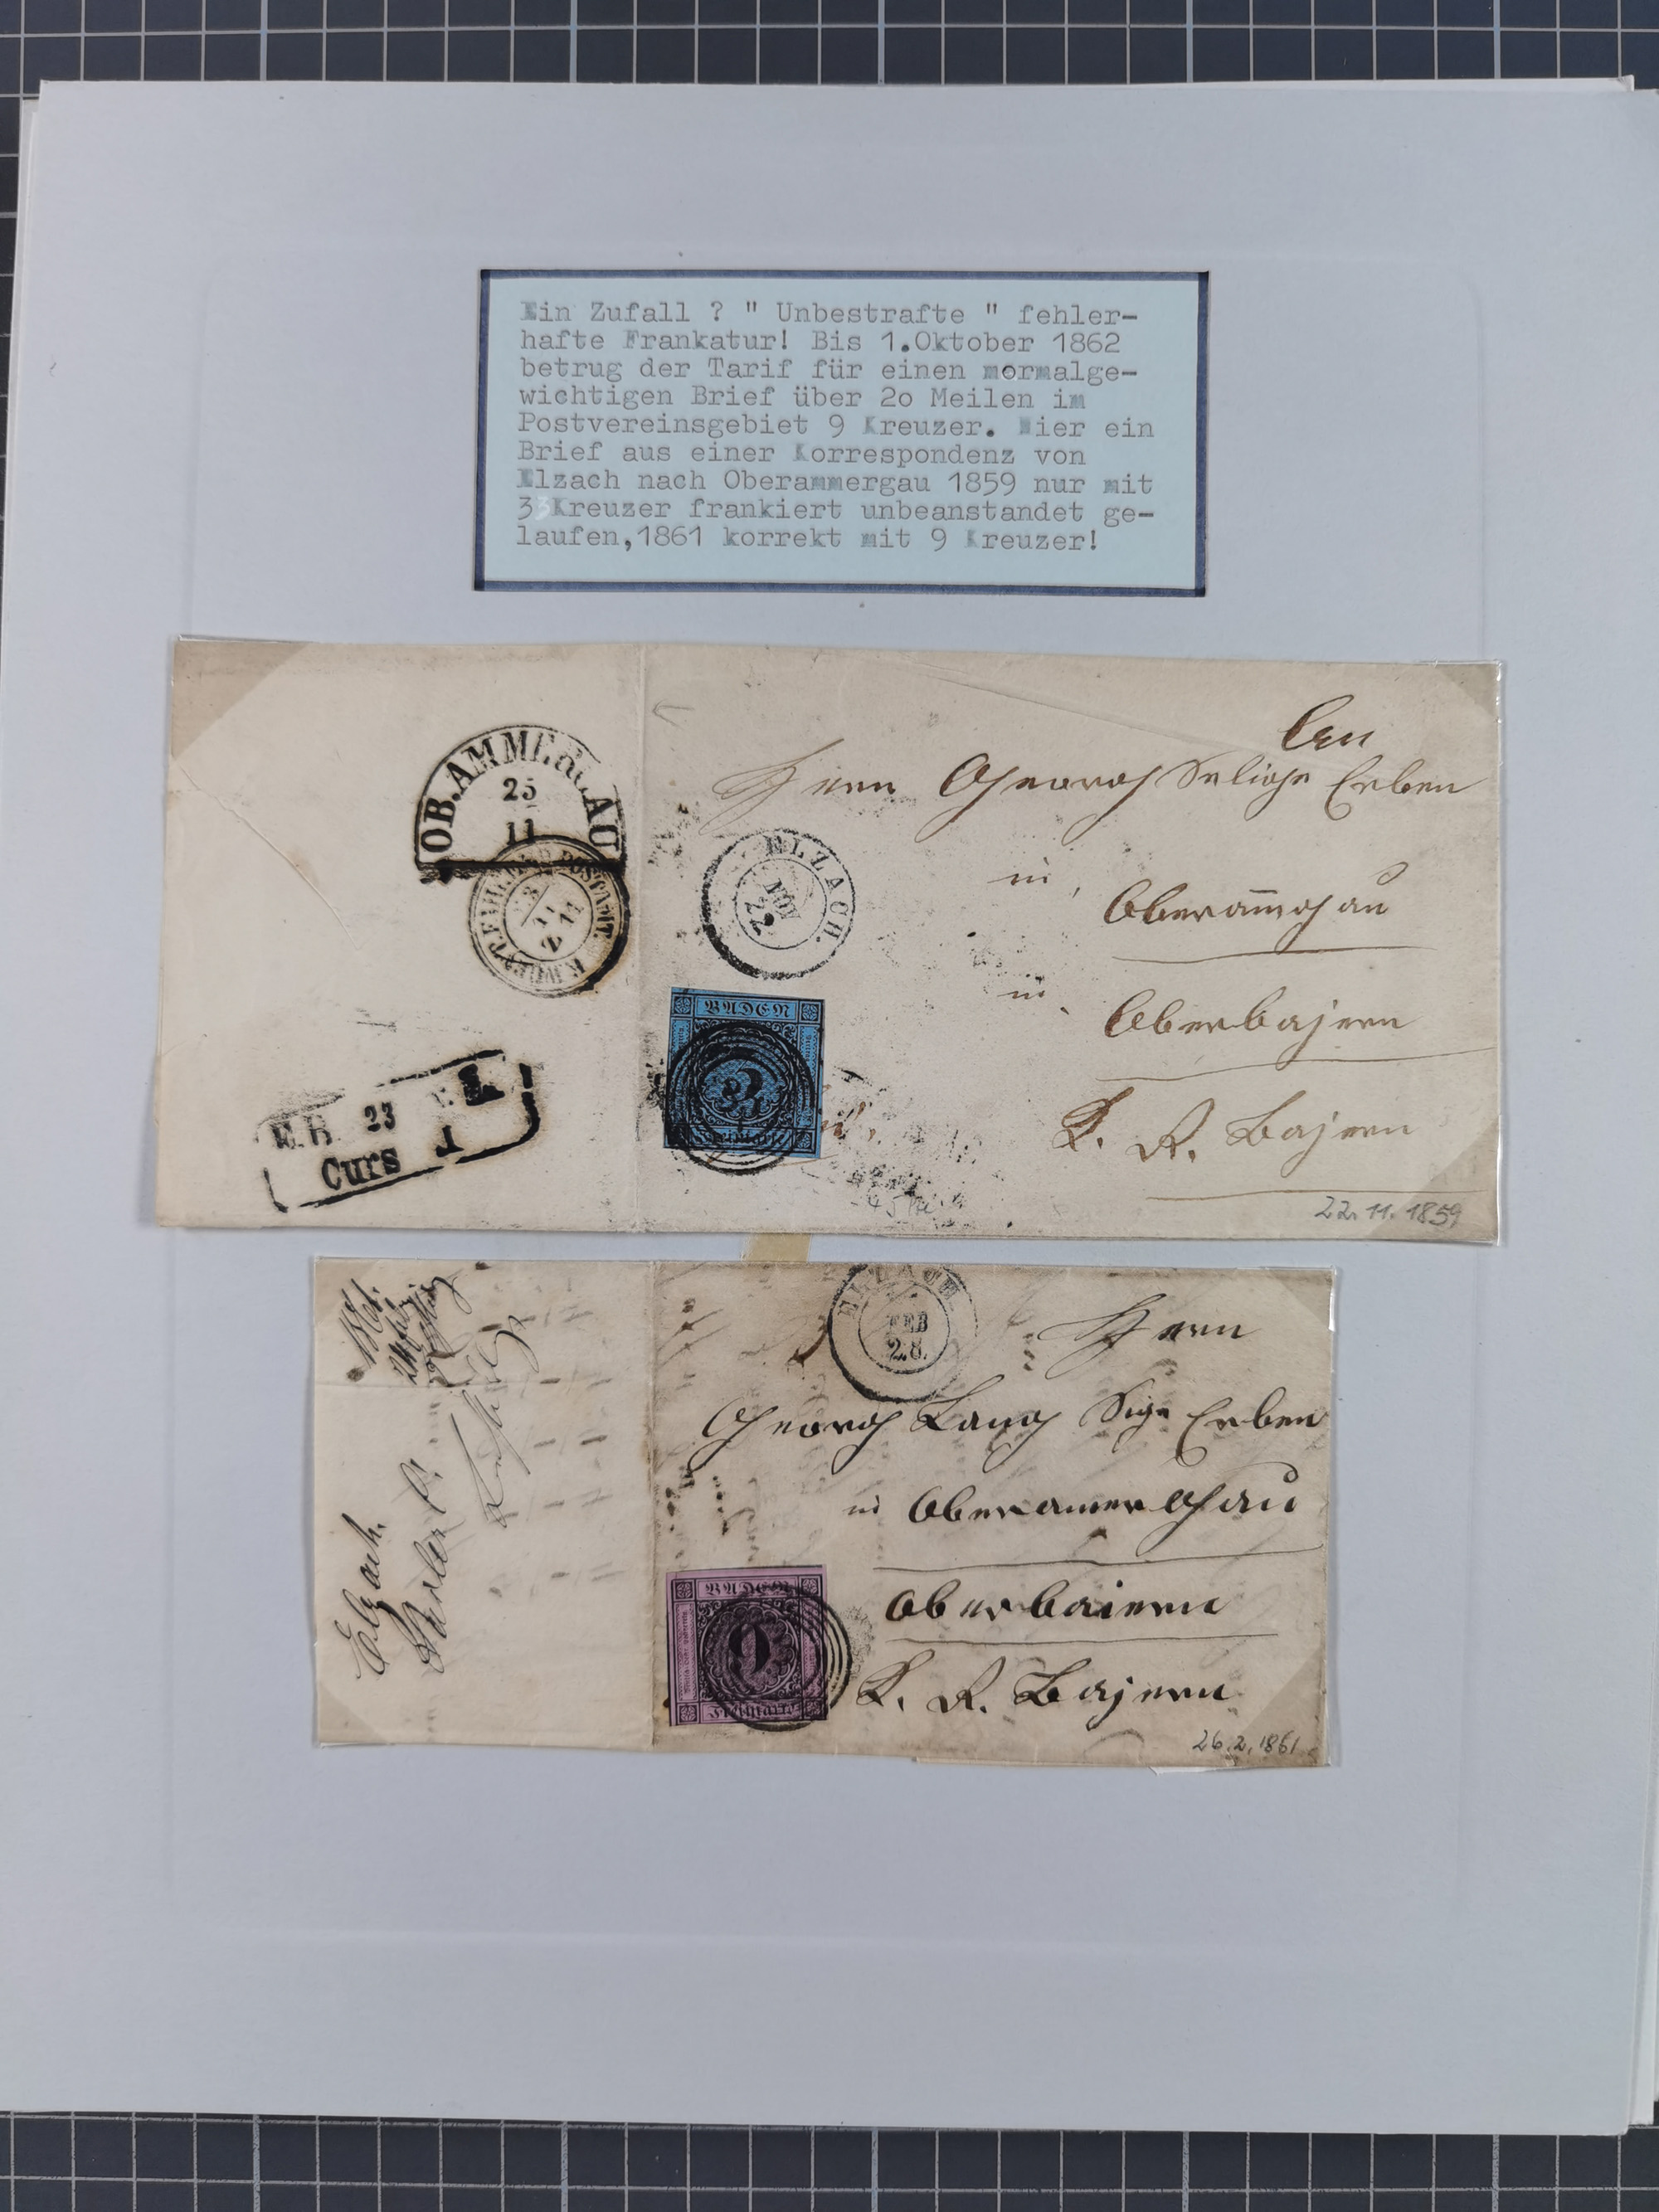 Ein Zufall ? " Unbestrafte " fehler-
hafte Frankatur! Bis 1.Oktober 1862
betrug der Tarif für einen normalge-
wichtigen Brief über 2o Meilen im
Postvereinsgebiet 9 Kreuzer. Hier ein
Brief aus einer Korrespondenz von
Elzach nach Oberammergau 1859 nur mit
3 Kreuzer frankiert unbeanstandet ge-
laufen,1861 korrekt mit 9 Kreuzer!
OB.AMMERGAU
25
11
E.B. 23
Curs I
ELZACH.
NOV
22
BADEN
3
Freimarke
An
Herrn Georg Selige Erben
in
Oberamgau
in
Oberbajern
K. R. Bajern
22.11.1859
1861.
Elzach.
ELZACH
FEB
28.
Herrn
Georg Lang Sige Erben
in Oberamergau
Oberbaiern
K. R. Bajern
BADEN
9
Freimarke
26.2.1861